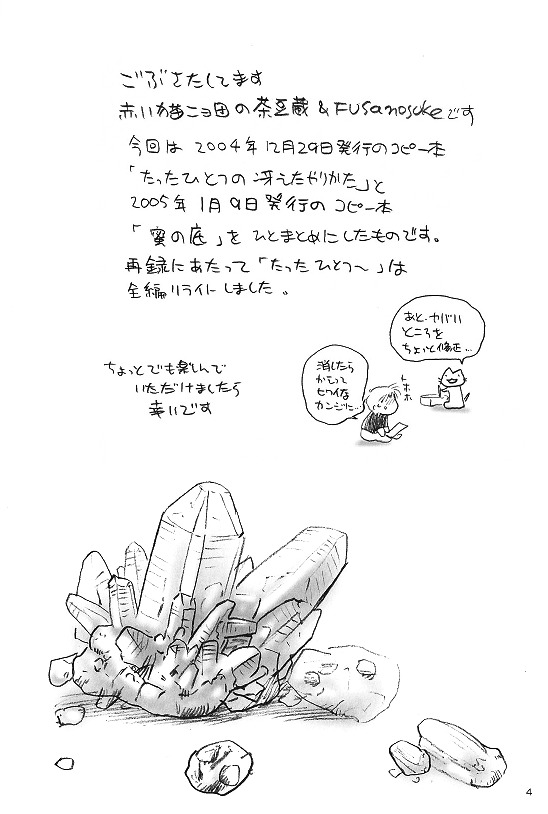 ごぶさたしてます
赤い猫ニョ団の茶豆蔵&Fusanosukeです
今回は 2004年12月29日発行のコピー本
「たったひとつの冴えたやりかた」と
2005年 1月9日発行の コピー本
「蜜の底」を ひとまとめにしたものです。
再録にあたって「たったひとつ〜」は
全編リライトしました。
あと、ヤバい
ところを
ちょっと修正…
消したら
かえって
ヒワイな
カンジに…
トホホ
ちょっとでも楽しんで
いただけましたら
幸いです
4